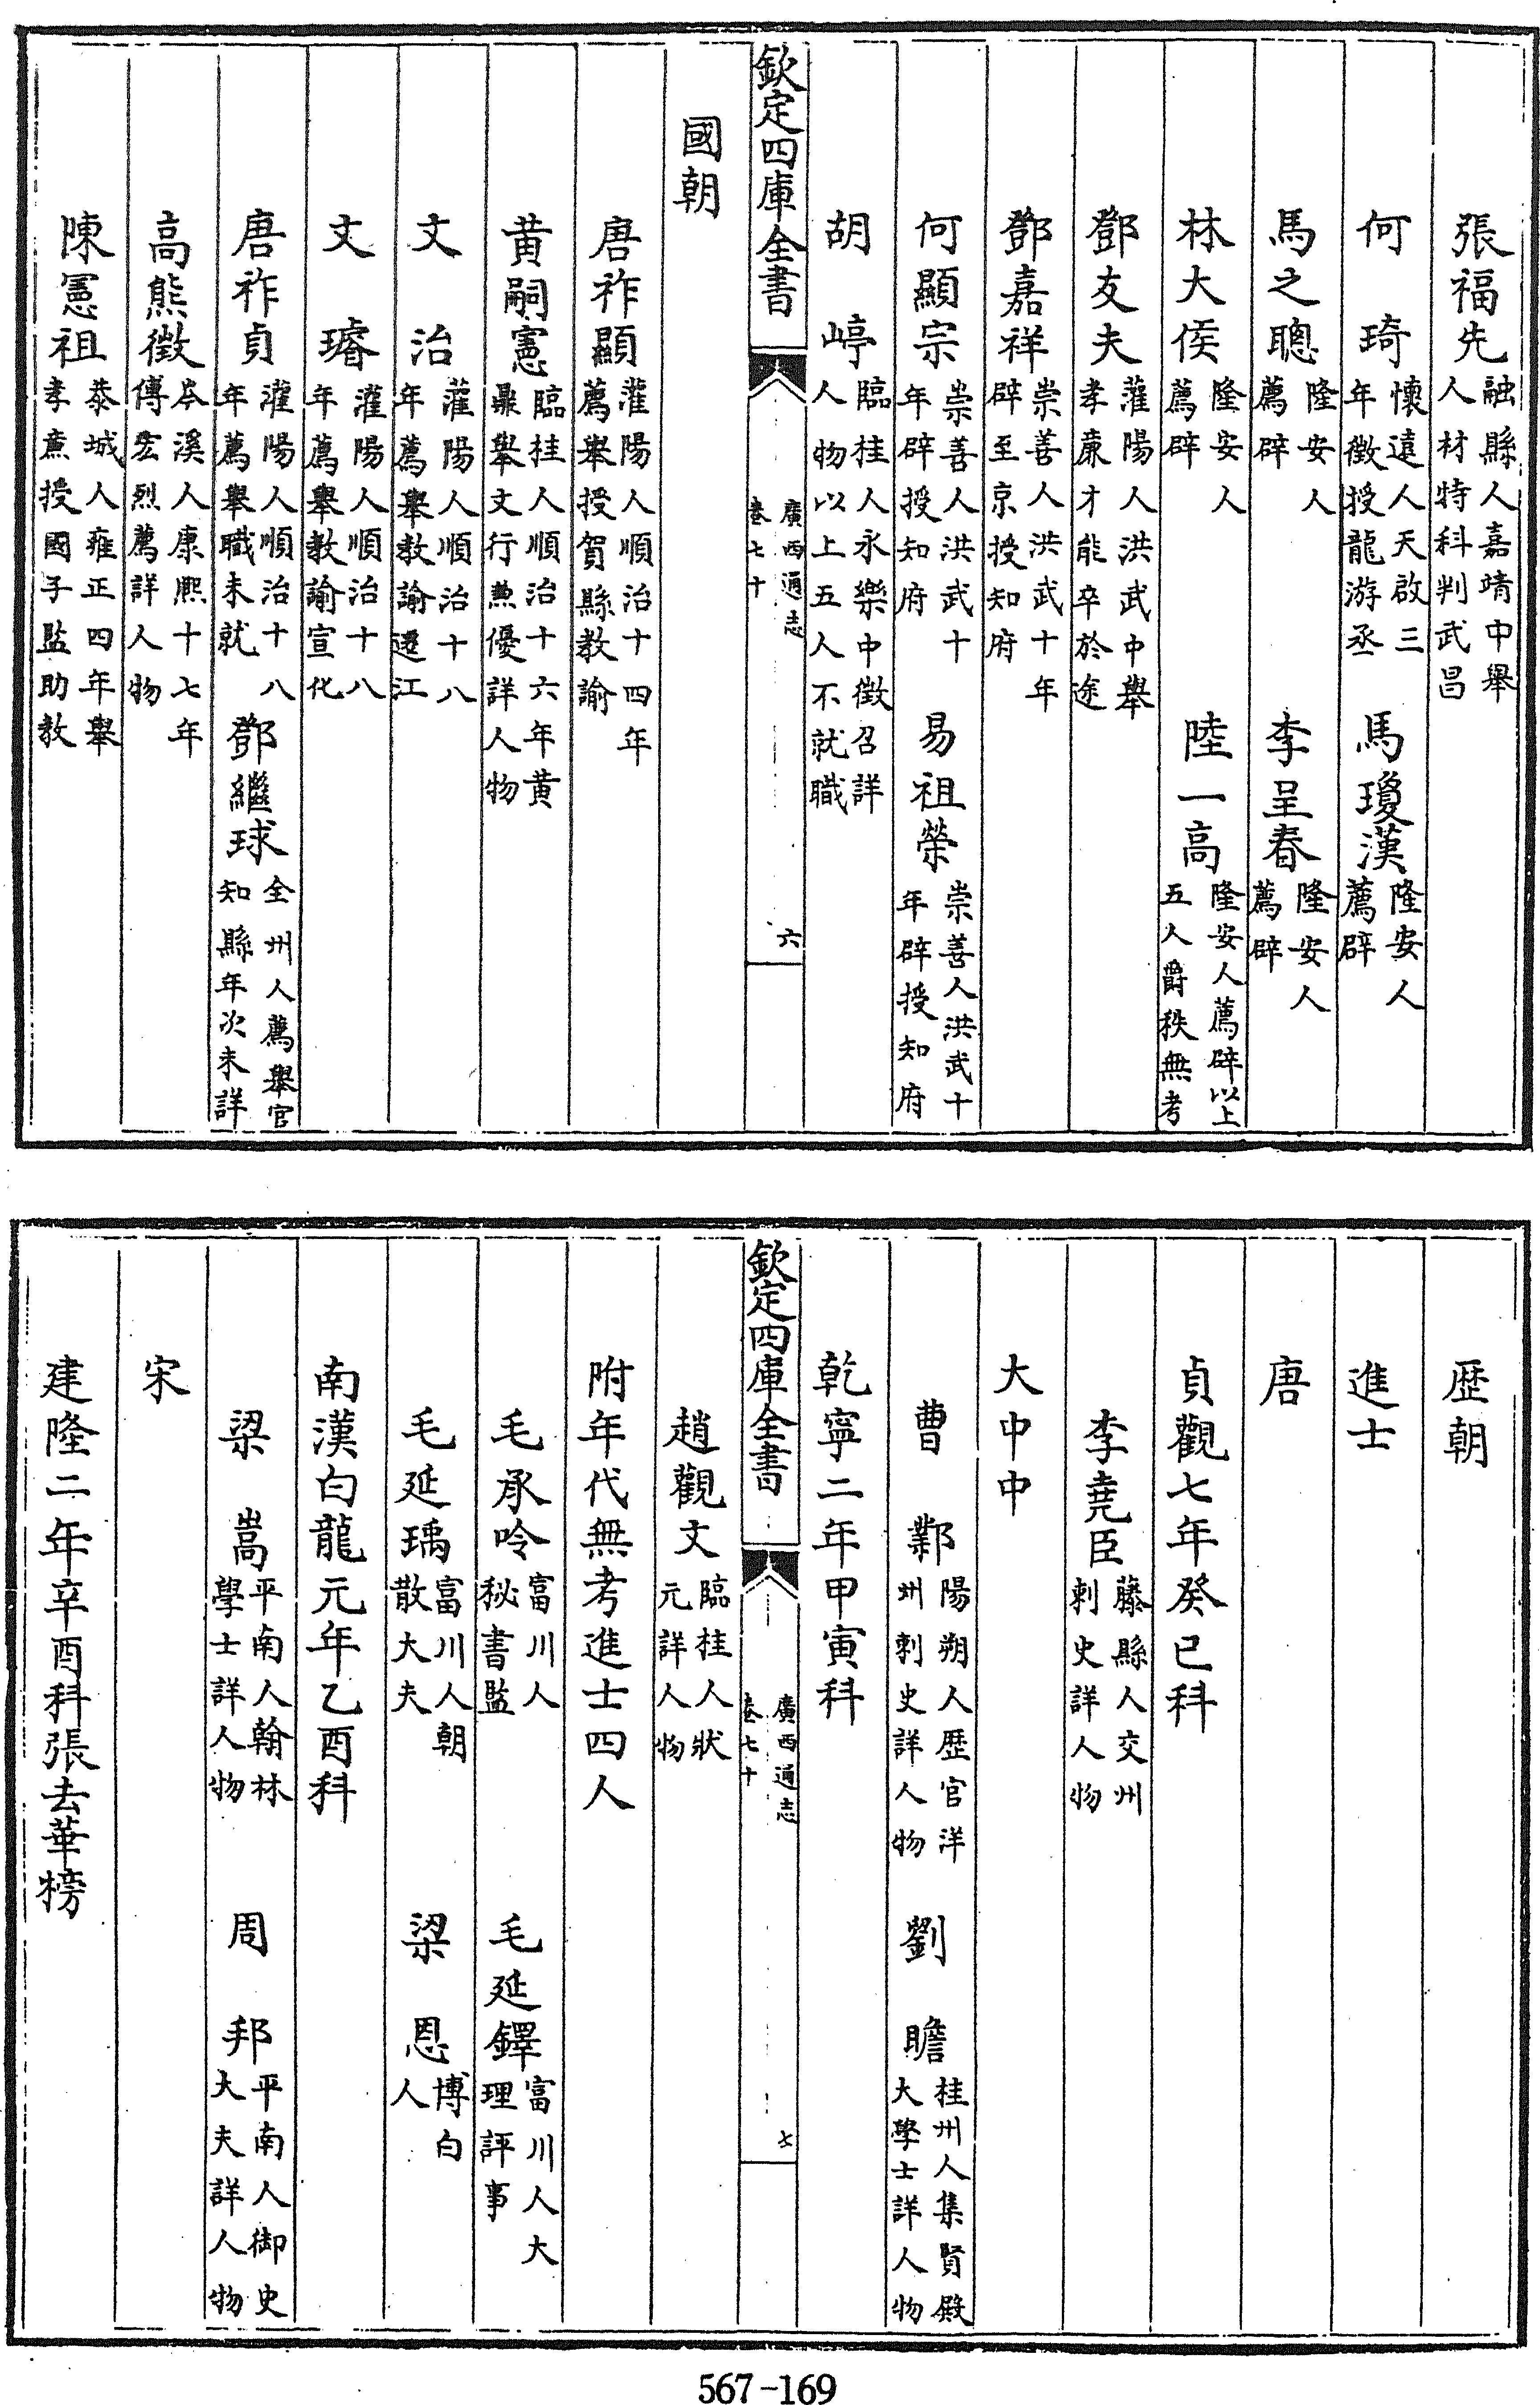 張福先融縣人嘉靖中舉人材特科判武昌
何琦懷遠人天啟三年徵授龍游丞 馬瓊漢隆安人薦辟
馬之聰隆安人薦辟 李呈春隆安人薦辟
林大侯隆安人薦辟 陸一高隆安人薦辟以上五人爵秩無考
鄧友夫灌陽人洪武中舉孝廉才能卒於途
鄧嘉祥崇善人洪武十年辟至京授知府
何顯宗崇善人洪武十年辟授知府 易祖榮崇善人洪武十年辟授知府
胡㟽臨桂人永樂中徵召詳人物以上五人不就職
欽定四庫全書 廣西通志卷七十 六
國朝
唐祚顯灌陽人順治十四年薦舉授賀縣教諭
黄嗣憲臨桂人順治十六年黄鼎舉文行兼優詳人物
文治灌陽人順治十八年薦舉教諭遷江
文璿灌陽人順治十八年薦舉教諭宣化
唐祚貞灌陽人順治十八年薦舉職未就 鄧繼球全州人薦舉官知縣年次未詳
高熊徵岑溪人康熙十七年傅宏烈薦詳人物
陳憲祖恭城人雍正四年舉孝亷授國子監助教
歴朝
進士
唐
貞觀七年癸巳科
李堯臣藤縣人交州刺史詳人物
大中中
曹鄴陽朔人歴官洋州刺史詳人物 劉瞻桂州人集賢殿大學士詳人物
乾寧二年甲寅科
欽定四庫全書 廣西通志卷七十 七
趙觀文臨桂人狀元詳人物
附年代無考進士四人
毛承呤富川人秘書監 毛延鐸富川人大理評事
毛延瑀富川人朝散大夫 梁恩博白人
南漢白龍元年乙酉科
梁嵩平南人翰林學士詳人物 周邦平南人御史大夫詳人物
宋
建隆二年辛酉科張去華榜
567-169